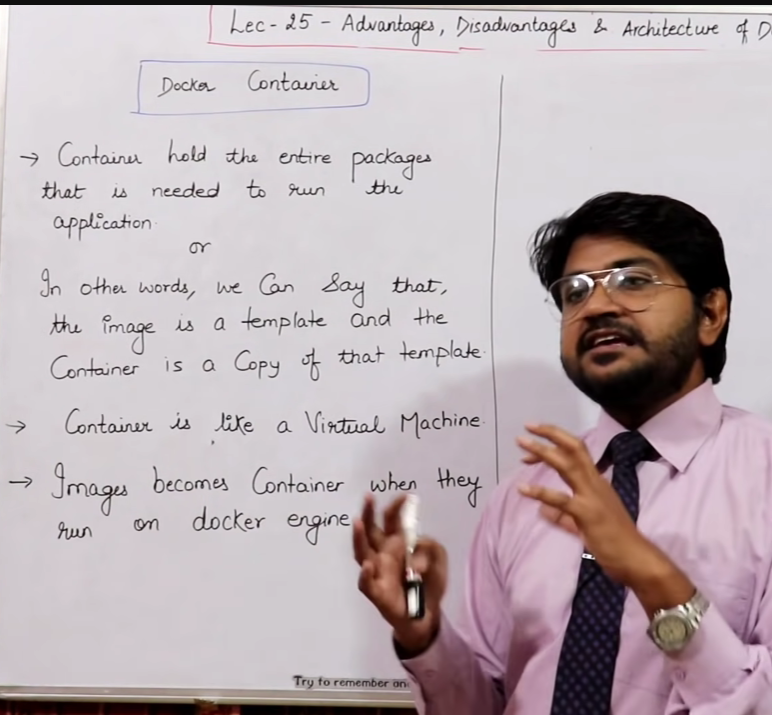 Lec-25 - Advantages, Disadvantages & Architecture of
Docker Container
→ Container hold the entire packages
that is needed to run the
application.
or
In other words, we Can Say that,
the image is a template and the
Container is a Copy of that template.
→ Container is like a Virtual Machine.
→ Images becomes Container when they
run on docker engine
Try to remember